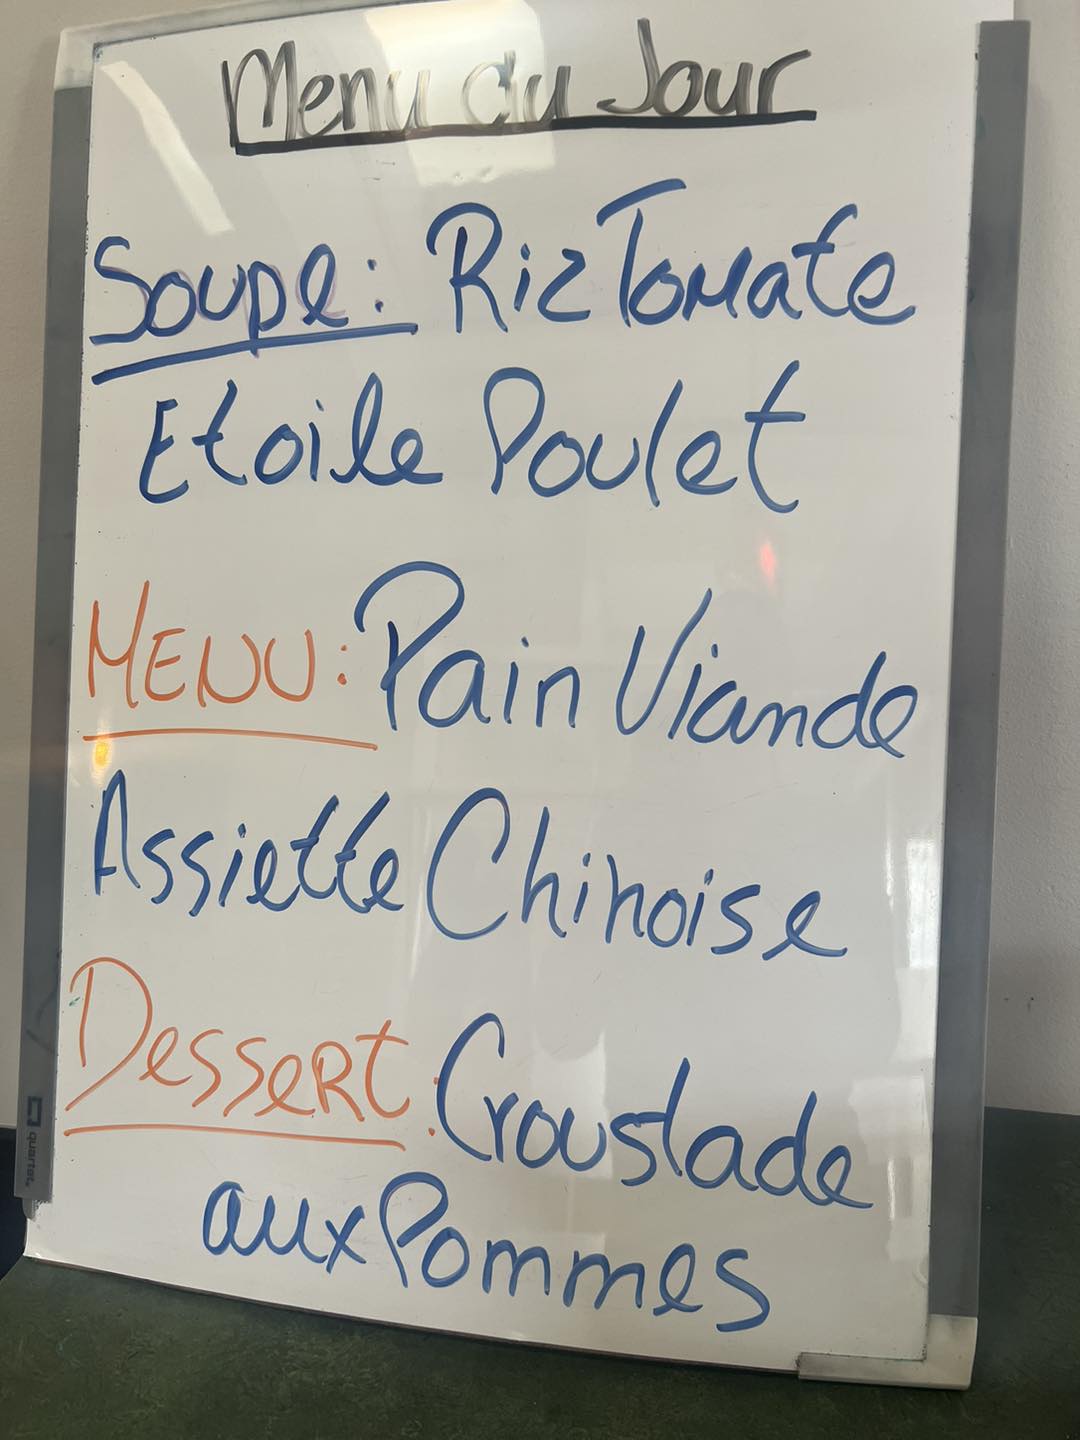 Menu du Jour
Soupe: Riz Tomate
Etoile Poulet
MENU: Pain Viande
Assiette Chinoise
Dessert: Croustade
aux Pommes
quartet